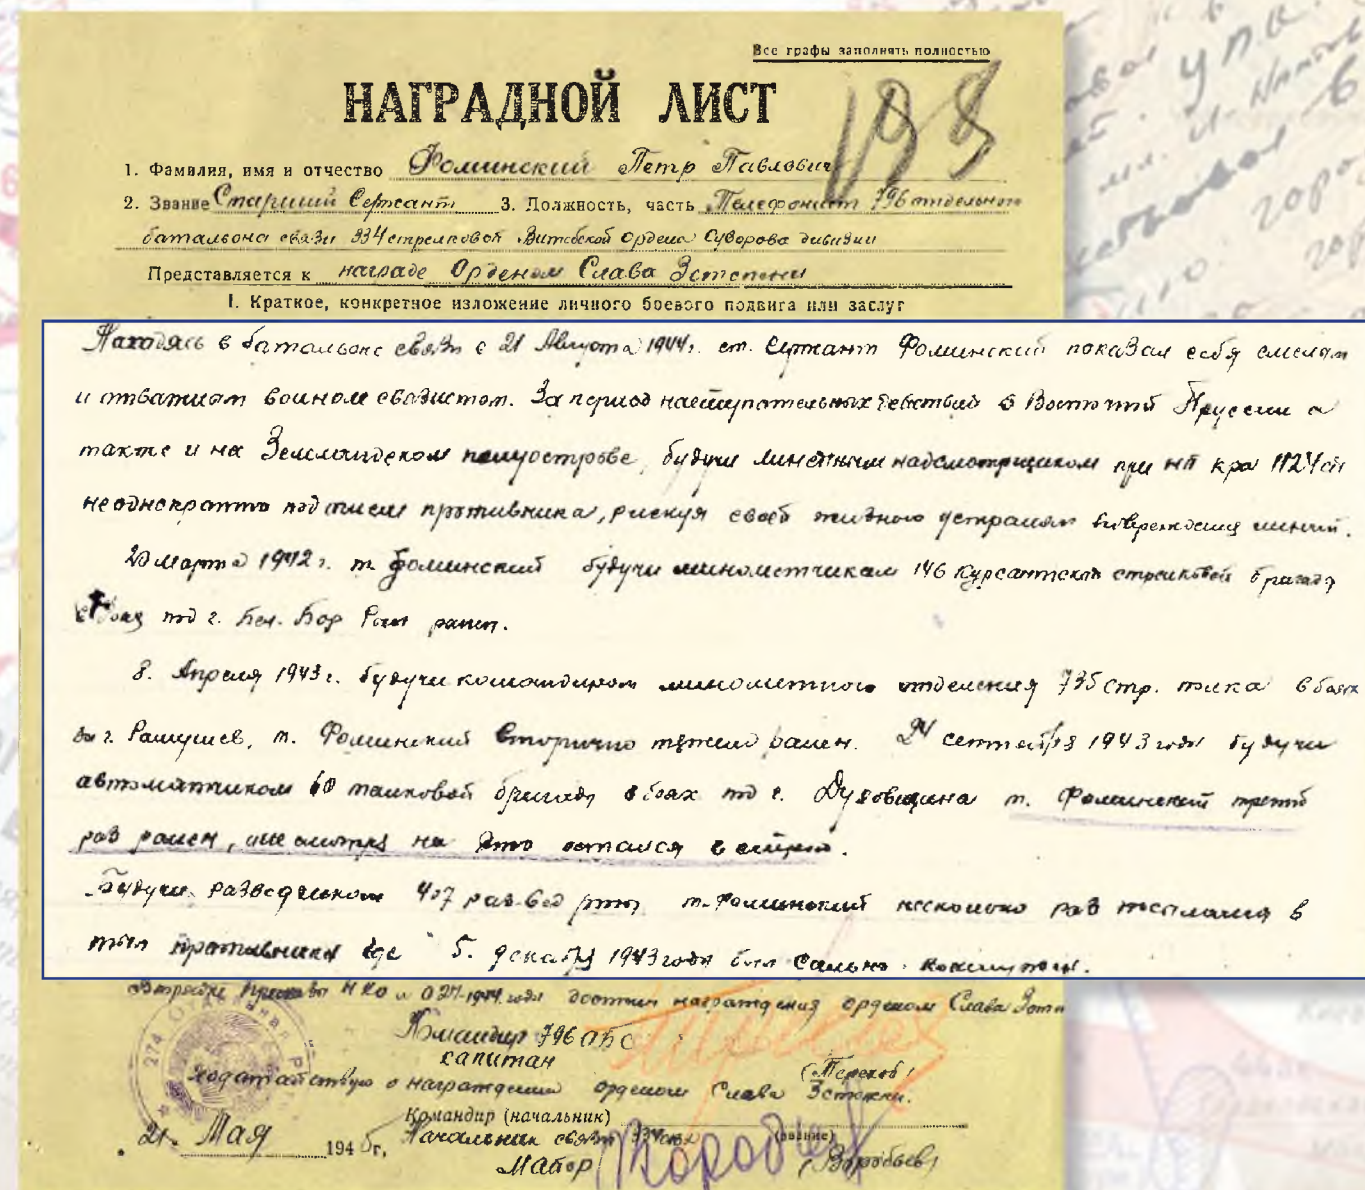 Все графы заполнять полностью
НАГРАДНОЙ ЛИСТ
198
1. Фамилия, имя и отчество Фоминский Петр Павлович
2. Звание Старший Сержант 3. Должность, часть Телефонист 796 отдельного
батальона связи 334 стрелковой Витебской ордена Суворова дивизии
Представляется к награде Орденом Слава 3 степени
I. Краткое, конкретное изложение личного боевого подвига или заслуг
Находясь в батальоне связи с 21 Августа 1944 г. ст. Сержант Фоминский показал себя смелым
и отважным воином связистом. За период наступательных действий в Восточной Пруссии а
также и на Земландском полуострове, будучи линейным надсмотрщиком при НП 1124 сп
неоднократно под огнем противника, рискуя своей жизнью устранял повреждения линий.
20 марта 1942 г. т. Фоминский будучи минометчиком 146 Курсантской стрелковой бригады
в боях под г. Бел. Бор был ранен.
8. Апреля 1943 г. будучи командиром минометного отделения 735 стр. полка в боях
за г. Рамушев, т. Фоминский вторично тяжело ранен. 24 сентября 1943 года будучи
автоматчиком 60 танковой бригады в боях под г. Духовщина т. Фоминский третий
раз ранен, не смотря на это остался в строю.
Будучи разведчиком 407 развед роты т. Фоминский несколько раз посылался в
тыл противника где 5. декабря 1943 года был сильно контужен.
достоин награждения орденом Слава 3 степ
Командир 796 ОБС
капитан (Терехов)
Ходатайствую о награждении орденом Слава 3 степени.
Командир (начальник)
(звание)
21 Мая 1945 г. Начальник связи 334
Майор (Воробьев)